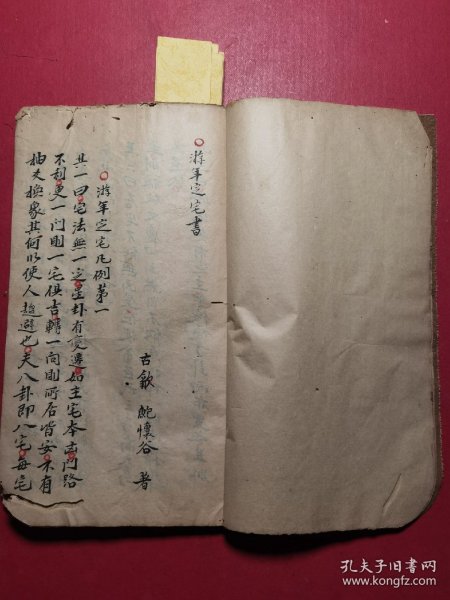 游年定宅書
古歙 鮑懷谷 著
游年定宅凡例第一
其一曰宅法無一定坐卦有變遷如主宅本南門路
不利更一門則一宅俱吉轉一向則所居皆安不有
抽爻換象其何以使人趨避也夫八卦即八宅每宅
孔夫子旧书网
www.kongfz.com